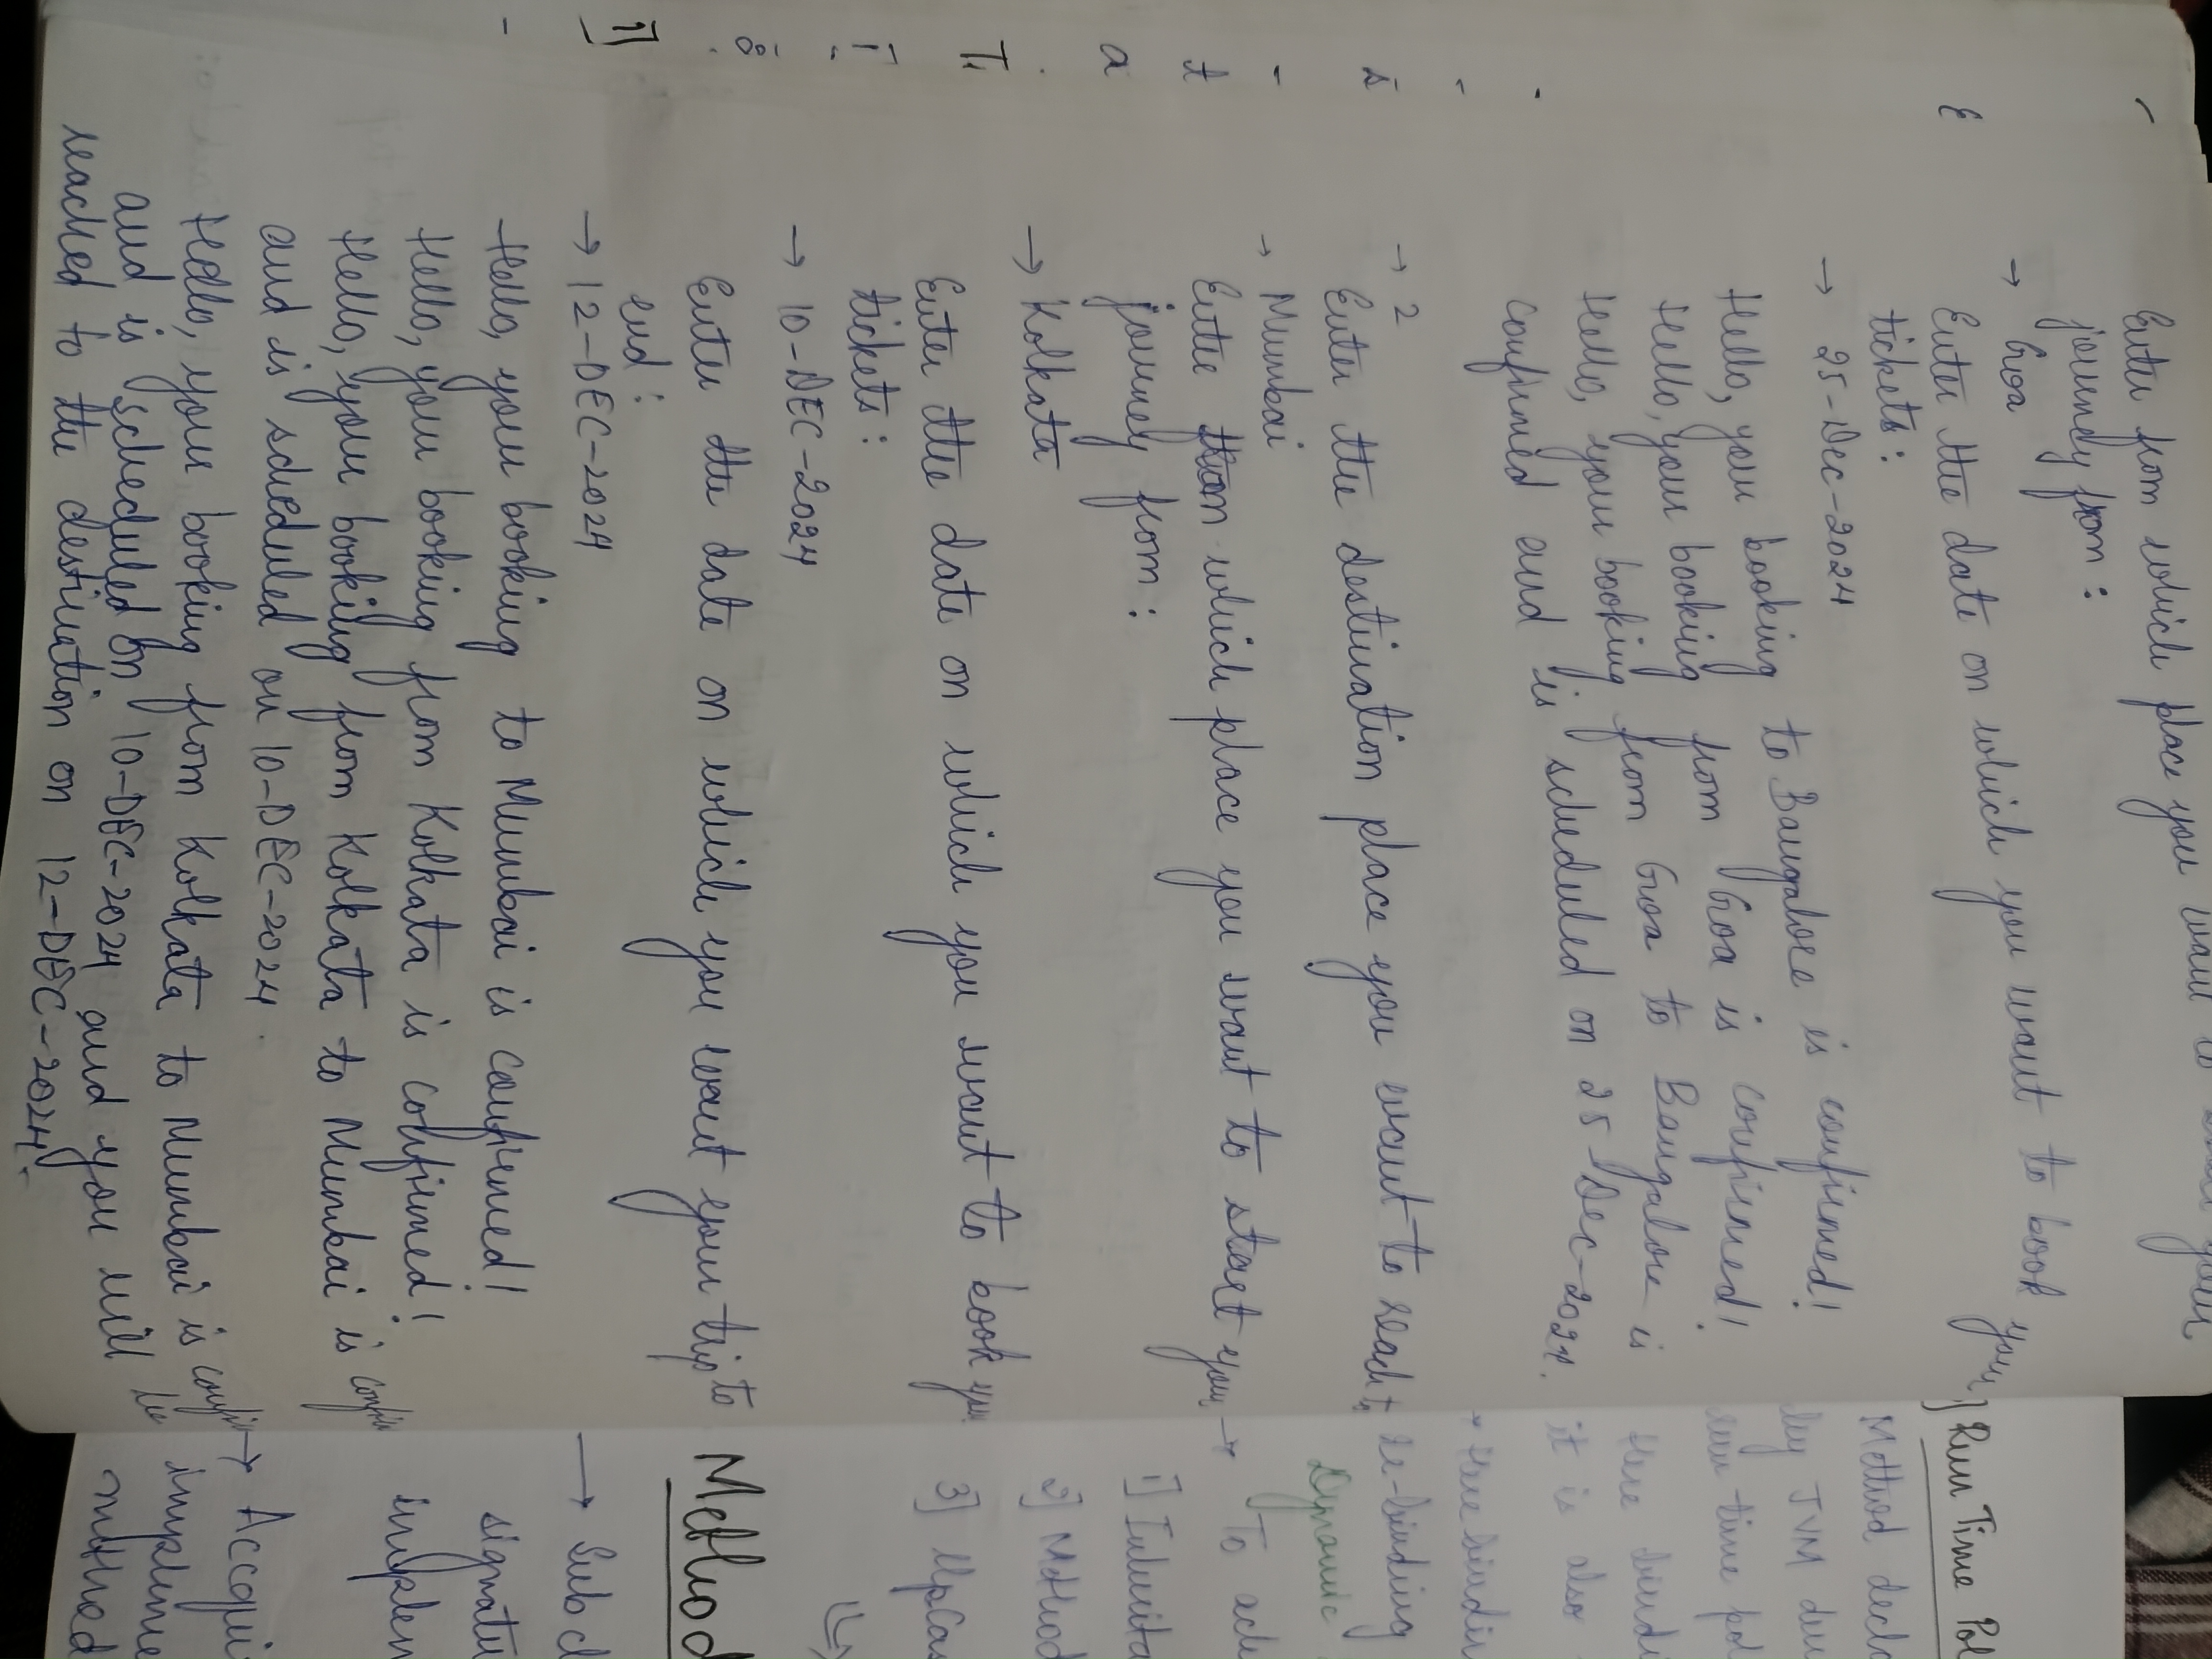 Enter from which place you want to start your
journey from :
→ Goa
Enter the date on which you want to book your
tickets :
→ 25-Dec-2024
Hello, your booking to Bangalore is confirmed!
Hello, your booking from Goa is confirmed!
Hello, your booking from Goa to Bangalore is
confirmed and is scheduled on 25-Dec-2024.
→ 2
Enter the destination place you want to reach to
→ Mumbai
Enter from which place you want to start your
journey from :
→ Kolkata
Enter the date on which you want to book your
tickets :
→ 10-DEC-2024
Enter the date on which you want your trip to
end :
→ 12-DEC-2024
Hello, your booking to Mumbai is confirmed!
Hello, your booking from Kolkata is confirmed!
Hello, your booking from Kolkata to Mumbai is
and is scheduled on 10-DEC-2024.
Hello, your booking from Kolkata to Mumbai is
and is scheduled on 10-DEC-2024 and you will be
reached to the destination on 12-DEC-2024.
1]
] Run Time Pol
Method decla
by JVM
run time pol
Here bindi
it is also
→ Here bindin
re-binding
Dynamic
→ To ach
1] Inherita
2] Method
3] UpCas
Method
→ Sub cl
signatu
implem
→ Accqui
impleme
method